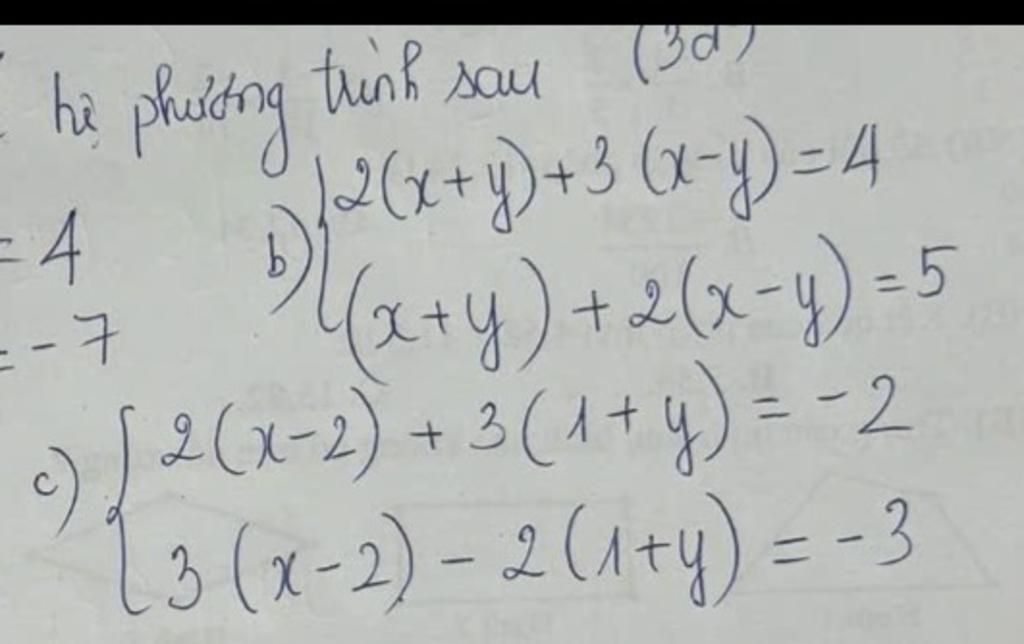 hệ phương trình sau (3đ)
= 4
b) { 2(x+y)+3(x-y)=4
= -7
(x+y)+2(x-y)=5
c) { 2(x-2)+3(1+y)=-2
3(x-2)-2(1+y)=-3